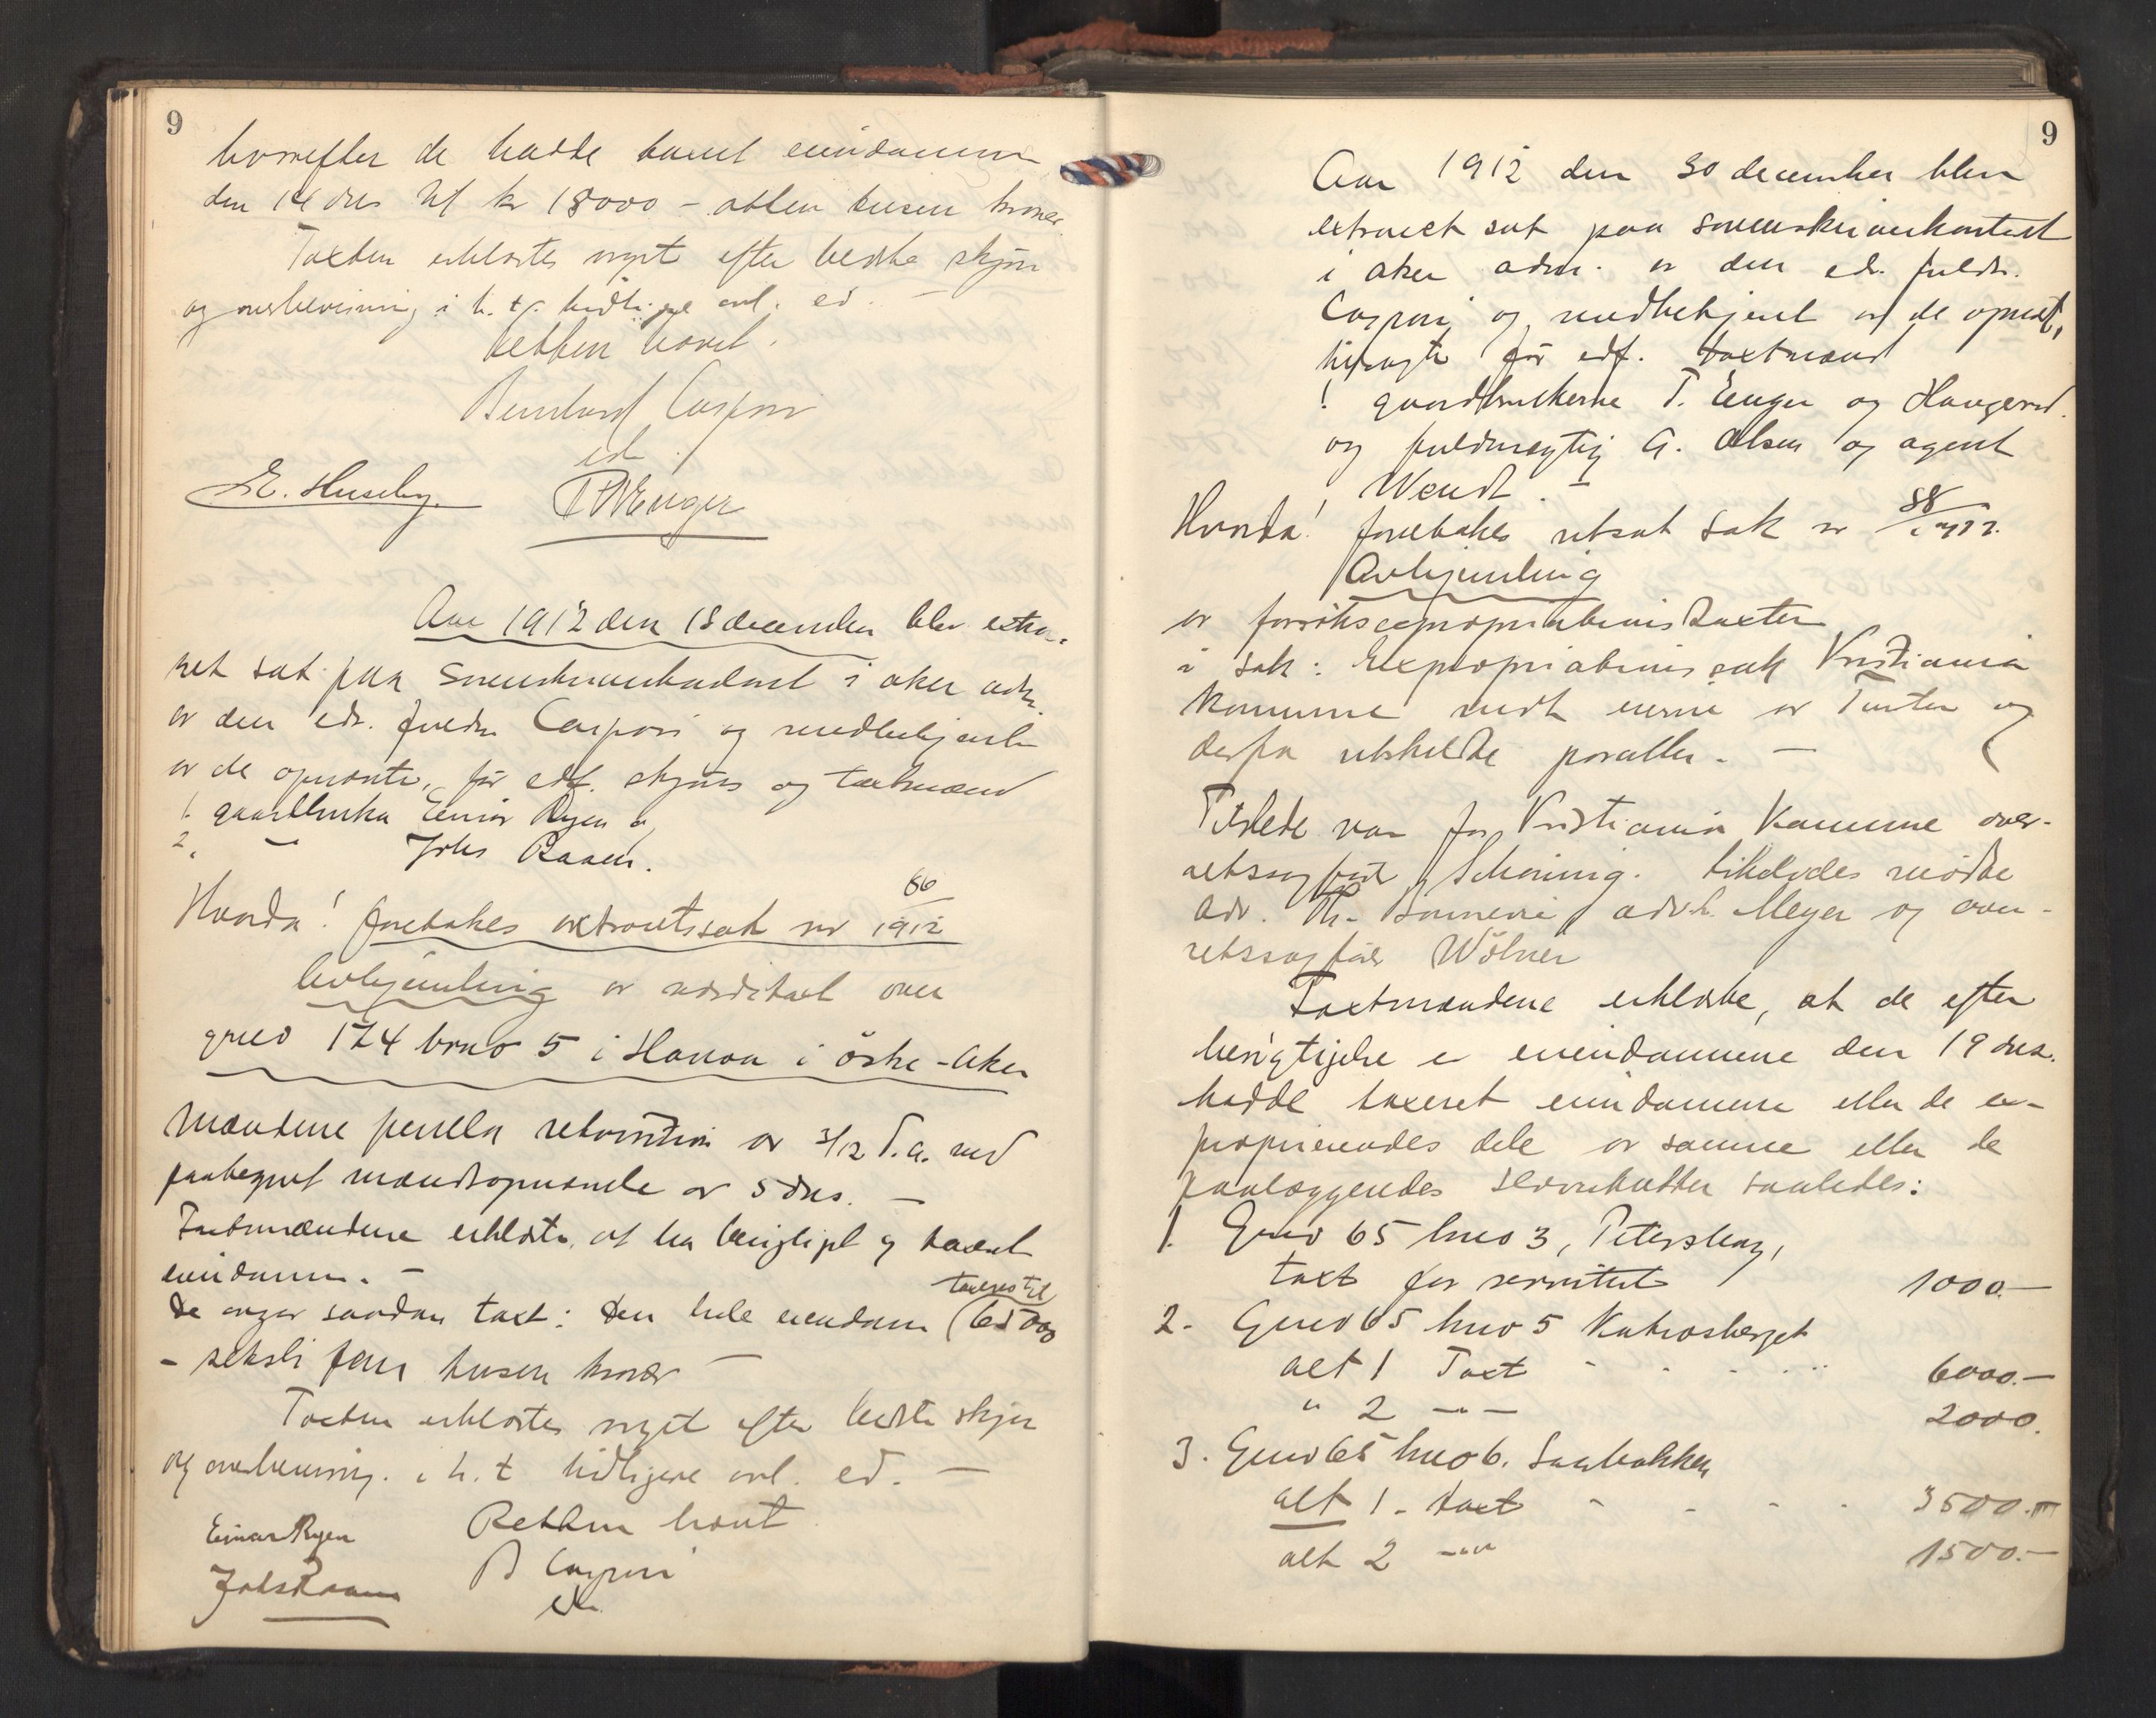 9
hvorefter de hadde taxert eiendommen
den 14 ds til kr 18000 - atten tusen kroner
Taxten erklærtes avgit efter bedste skjøn
og overbevisning i h. t. tidligere avl. ed. -
Retten hævet.
Bernhard Caspari
ed.
E. Huseby. T Wenger
Aar 1912 den 18 december blev extra-
ret sat paa Sorenskriverkontoret i Aker adm.
av den eds. fuldm Caspari og medbetjent
av de opnævnte, før edf. skjøns og taxtmænd
1. gaardbruker Einar Ryen og
2. - Johs Raaen.
Hvorda! foretakes extraretssak nr 66/1912
Avhjemling av værditaxt over
gno 174 brno 5 i Hauan i østre-Aker
Mændene fremla rekvisition av 3/12 d.a. med
paategnet mændsopnævnelse av 5 ds. -
Taxtmændene erklærte at ha besigtiget og taxert
eiendommen. -
De avgav saadan taxt: Den hele eiendom (taxeres til 65000
- seksti fem tusen kroner -
Taxten erklærtes avgit efter bedste skjøn
og overbevisning. i h. t tidligere avl. ed. -
Einar Ryen Retten hævet.
Johs Raaen B Caspari
ed.
9
Aar 1912 den 30 december blev
extraret sat paa sorenskriverkontoret
i Aker adm. av den eds. fuldm.
Caspari og medbetjent av de opnævnt,
før edf. taxtmænd
! gaardbrukerne T. Wenger og Haugerud.
og fuldmægtig A. Olsen og agent
Wendt. -
Hvorda! foretakes retssat sak nr 88/1912.
Avhjemling
av forsøksexpropriationstaxten
i sak: Expropriationssak Kristiania
Kommune mot eierne av Tveten og
derfra utskilte parceller. -
Tilstede var for Kristiania Kommune over-
retssagfører Schøning. Likeledes møtte
Adv. Th. , advk. Meyer og over-
retssagfører Wølner
Taxtmændene erklærte, at de efter
besigtigelse av eiendommene den 19 ds.
hadde taxeret eiendommene eller de ex-
proprierendes dele av samme eller de
paalæggendes servitutter saaledes:
1. Gno 65 bno 3, Petersborg,
taxt for servitut 1000.-
2. Gno 65 bno 5 Katrosberget
alt 1 Taxt - - - - 6000.-
" 2 -"- 2000.
3. Gno 65 bno 6. Saubakken
alt 1 - taxt - - - - 3500.-
alt 2 -"- 1500.-